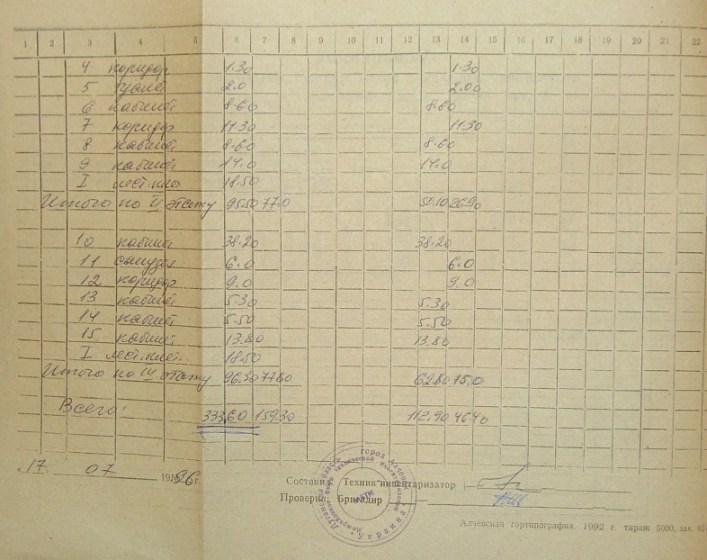 1 2 3 4 5 6 7 8 9 10 11 12 13 14 15 16 17 18 19 20 21 22
4 коридор 1.30 1.30
5 2.0 2.00
6 кабинет 8.60 8.60
7 коридор 11.30 11.30
8 кабинет 8.60 8.60
9 кабинет 14.0 14.0
I лест. 18.50
Итого по II этажу 95.50 77.0 50.10 26.90
10 кабинет 38.20 38.20
11 санузел 6.0 6.0
12 коридор 9.0 9.0
13 кабинет 5.30 5.30
14 кабинет 5.50 5.50
15 кабинет 13.80 13.80
I лест. клет. 18.50
Итого по III этажу 96.30 77.80 62.80 15.0
Всего: 333.60 159.30 112.90 46.40
17. 07 1996г.
Составил Техник инвентаризатор
Проверил Бригадир
город
Украина
Алчевская гортипография. 1992 г. тираж 5000, зак.